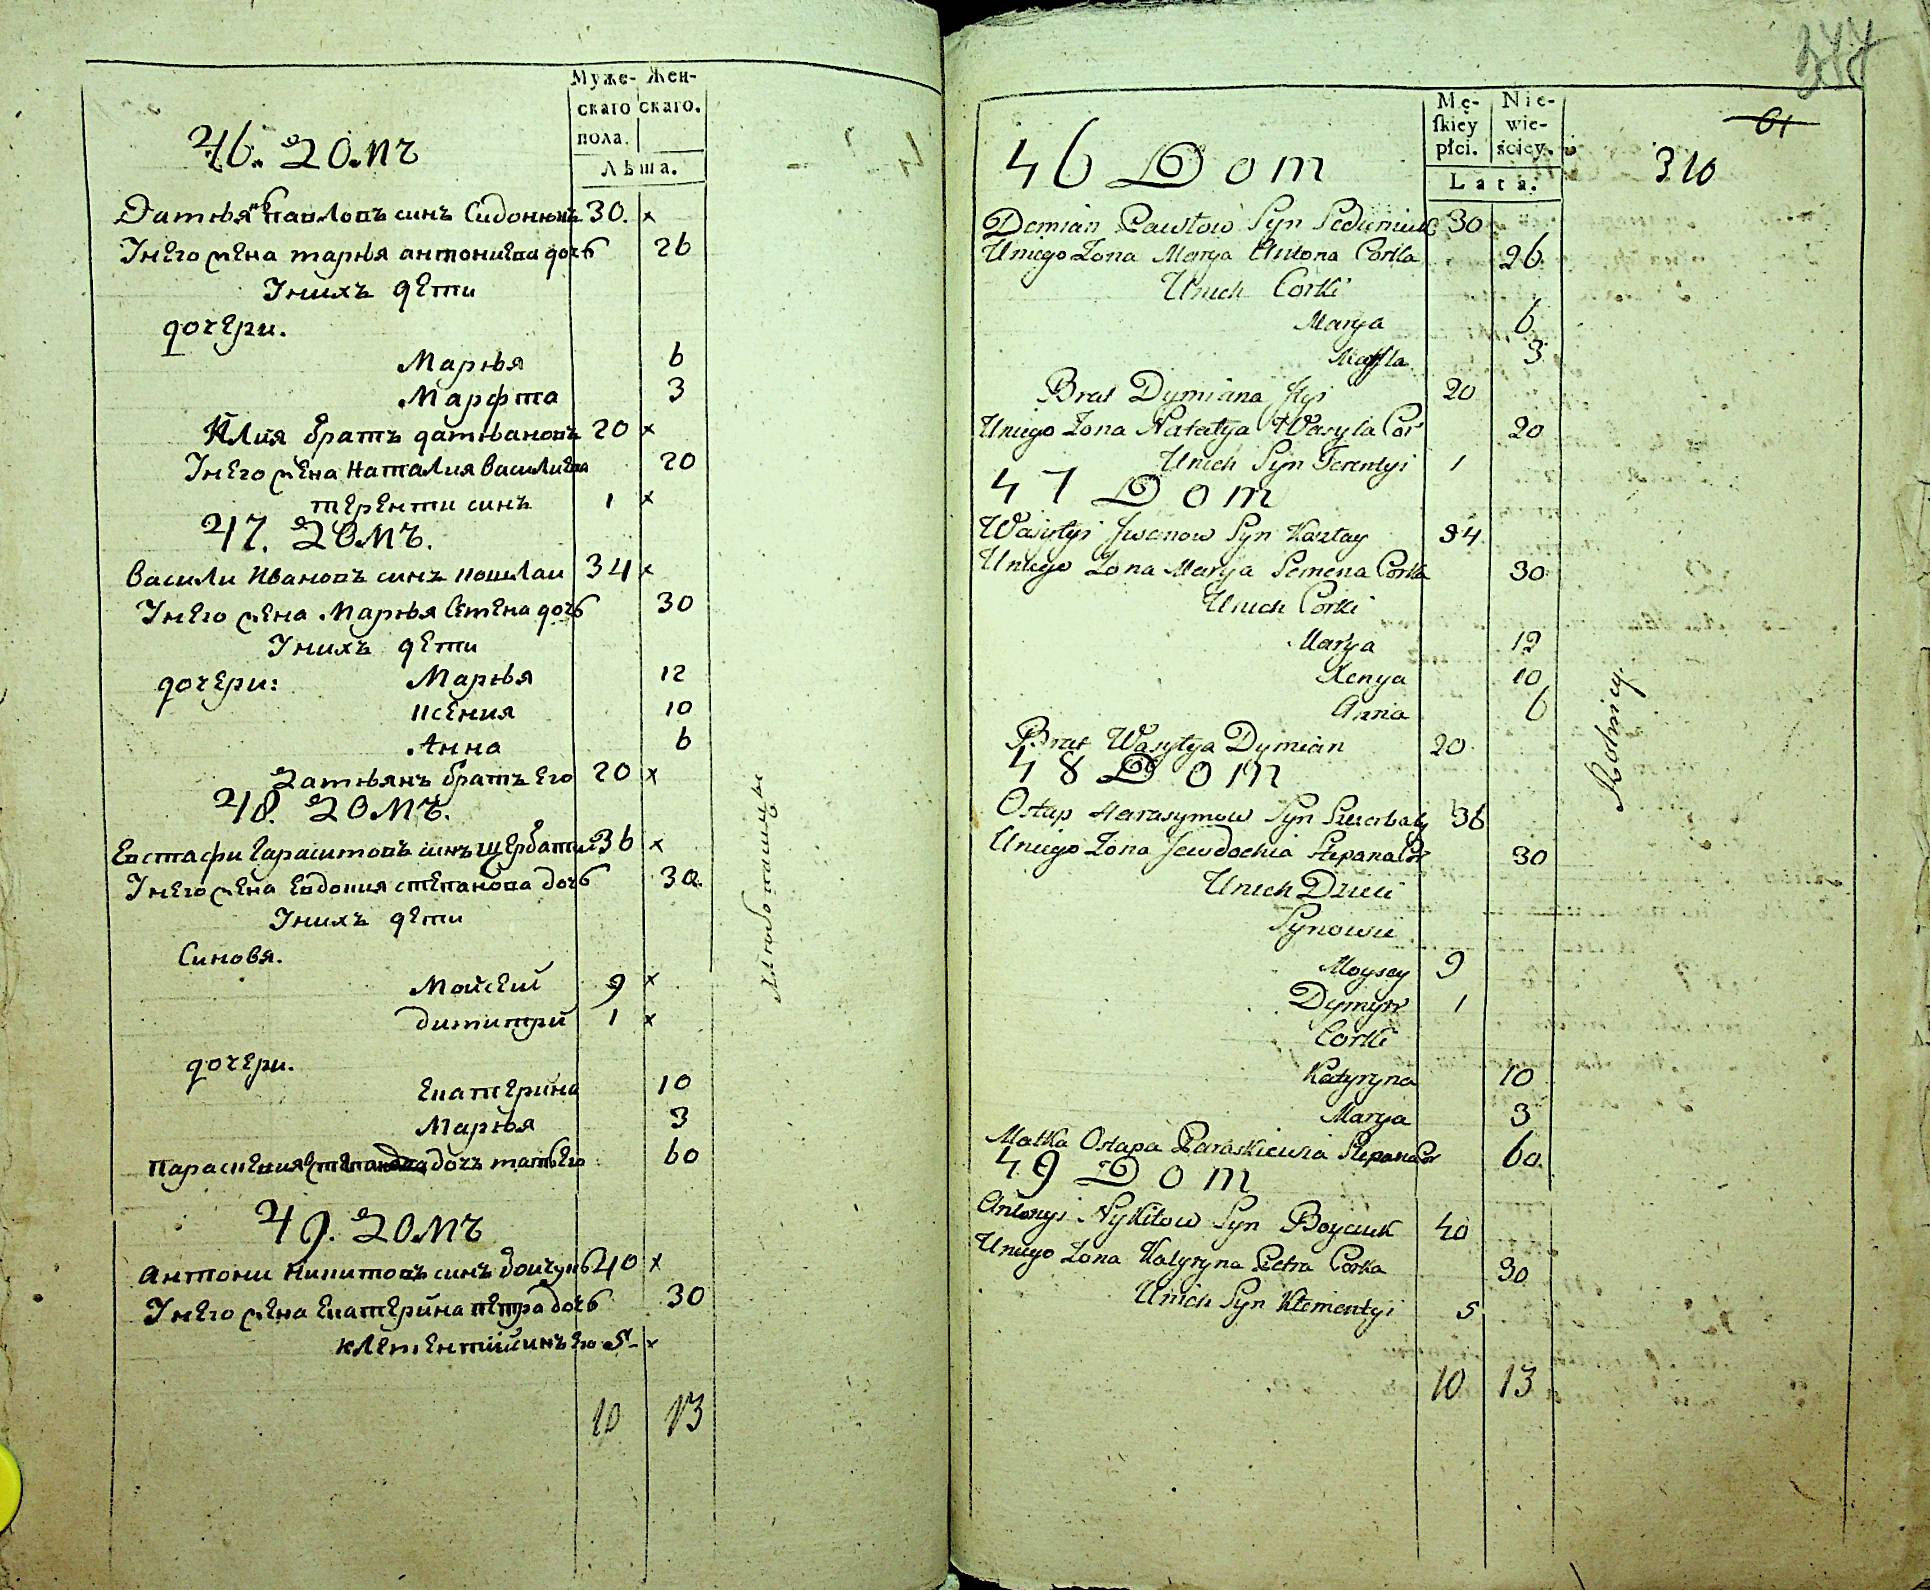 Муже- Жен-
скаго скаго.
пола.
Лѣта.
46. домъ
Дамнян Павловъ синъ Сидонюкъ 30. x
Унего жена марья антониева дочь 26
Унихъ дети
дочери.
Марья 6
Марфта 3
Илия братъ дамяновъ 20 x
Унего жена Наталия василиева 20
терентий синъ 1 x
47. домъ.
Васили Ивановъ синъ 34 x
Унего жена Марья Семена дочь 30
Унихъ дети
дочери: Марья 12
ксения 10
Анна 6
дамянъ братъ его 20 x
48. домъ.
Евстафи Гарасимовъ синъ щербати 36 x
Унего жена Евдокия степанова дочь 30.
Унихъ дети
Синовя.
Мойсей 9 x
димитрий 1 x
дочери.
Екатерина 10
Марья 3
параскевия дочъ мать его 60
49. домъ
Антони Никитовъ синъ бойчукъ 40 x
Унего жена Екатерина петра дочь 30
клементий синъ его 5 x
10 13
хлебопашцы
377
61
310
Mę- Nie-
skiey wie-
płci. ściey.
Lata.
46 Dom
Demian Pawłow Syn Seduniuk 30
Uniego Zona Marya Antona Corka 26
Unich Corki
Marya 6
Maffta 3
Brat Dymiana Ilyi 20
Uniego Zona Natalya Wasyla Cor 20
Unich Syn Terentyi 1
47 Dom
Wasylyi Iwanow Syn 34
Uniego Zona Marya Semena Corka 30
Unich Corki
Marya 12
Xenya 10
Anna 6
Brat Wasylya Dymian 20
48 Dom
Ostap Harasymow Syn Szczerbaty 36
Uniego Zona Jewdochia Stepana Cor 30
Unich Dzieci
Synowie
Moysey 9
Dymytr 1
Corki
Katyryna 10
Marya 3
Matka Ostapa Paraskiewia Stepana Cor 60
49 Dom
Antonyi Nykitow Syn Boyczuk 40
Uniego Zona Katyryna Pietra Corka 30
Unich Syn Klementyi 5
10 13
Rolnicy